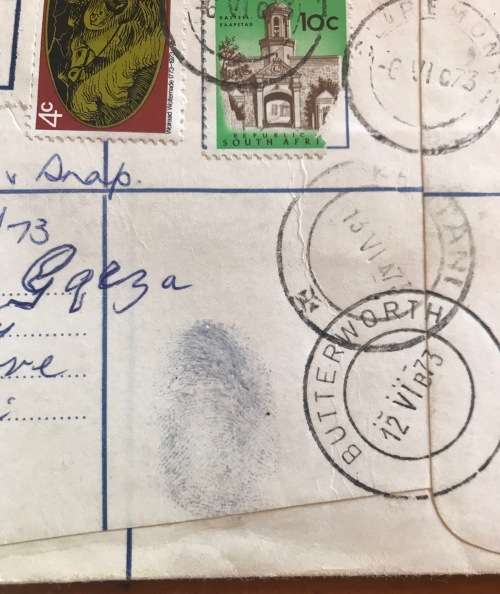 4c
Wolraad Woltemade 1773-1973
KASTEEL
KAAPSTAD
10c
REPUBLIC
SOUTH AFRI
VI 073
REMON
-6 VI 073
Snap.
/73
Gqeza
ve
13 VI
ANI
BUTTERWORTH
12 VI B73